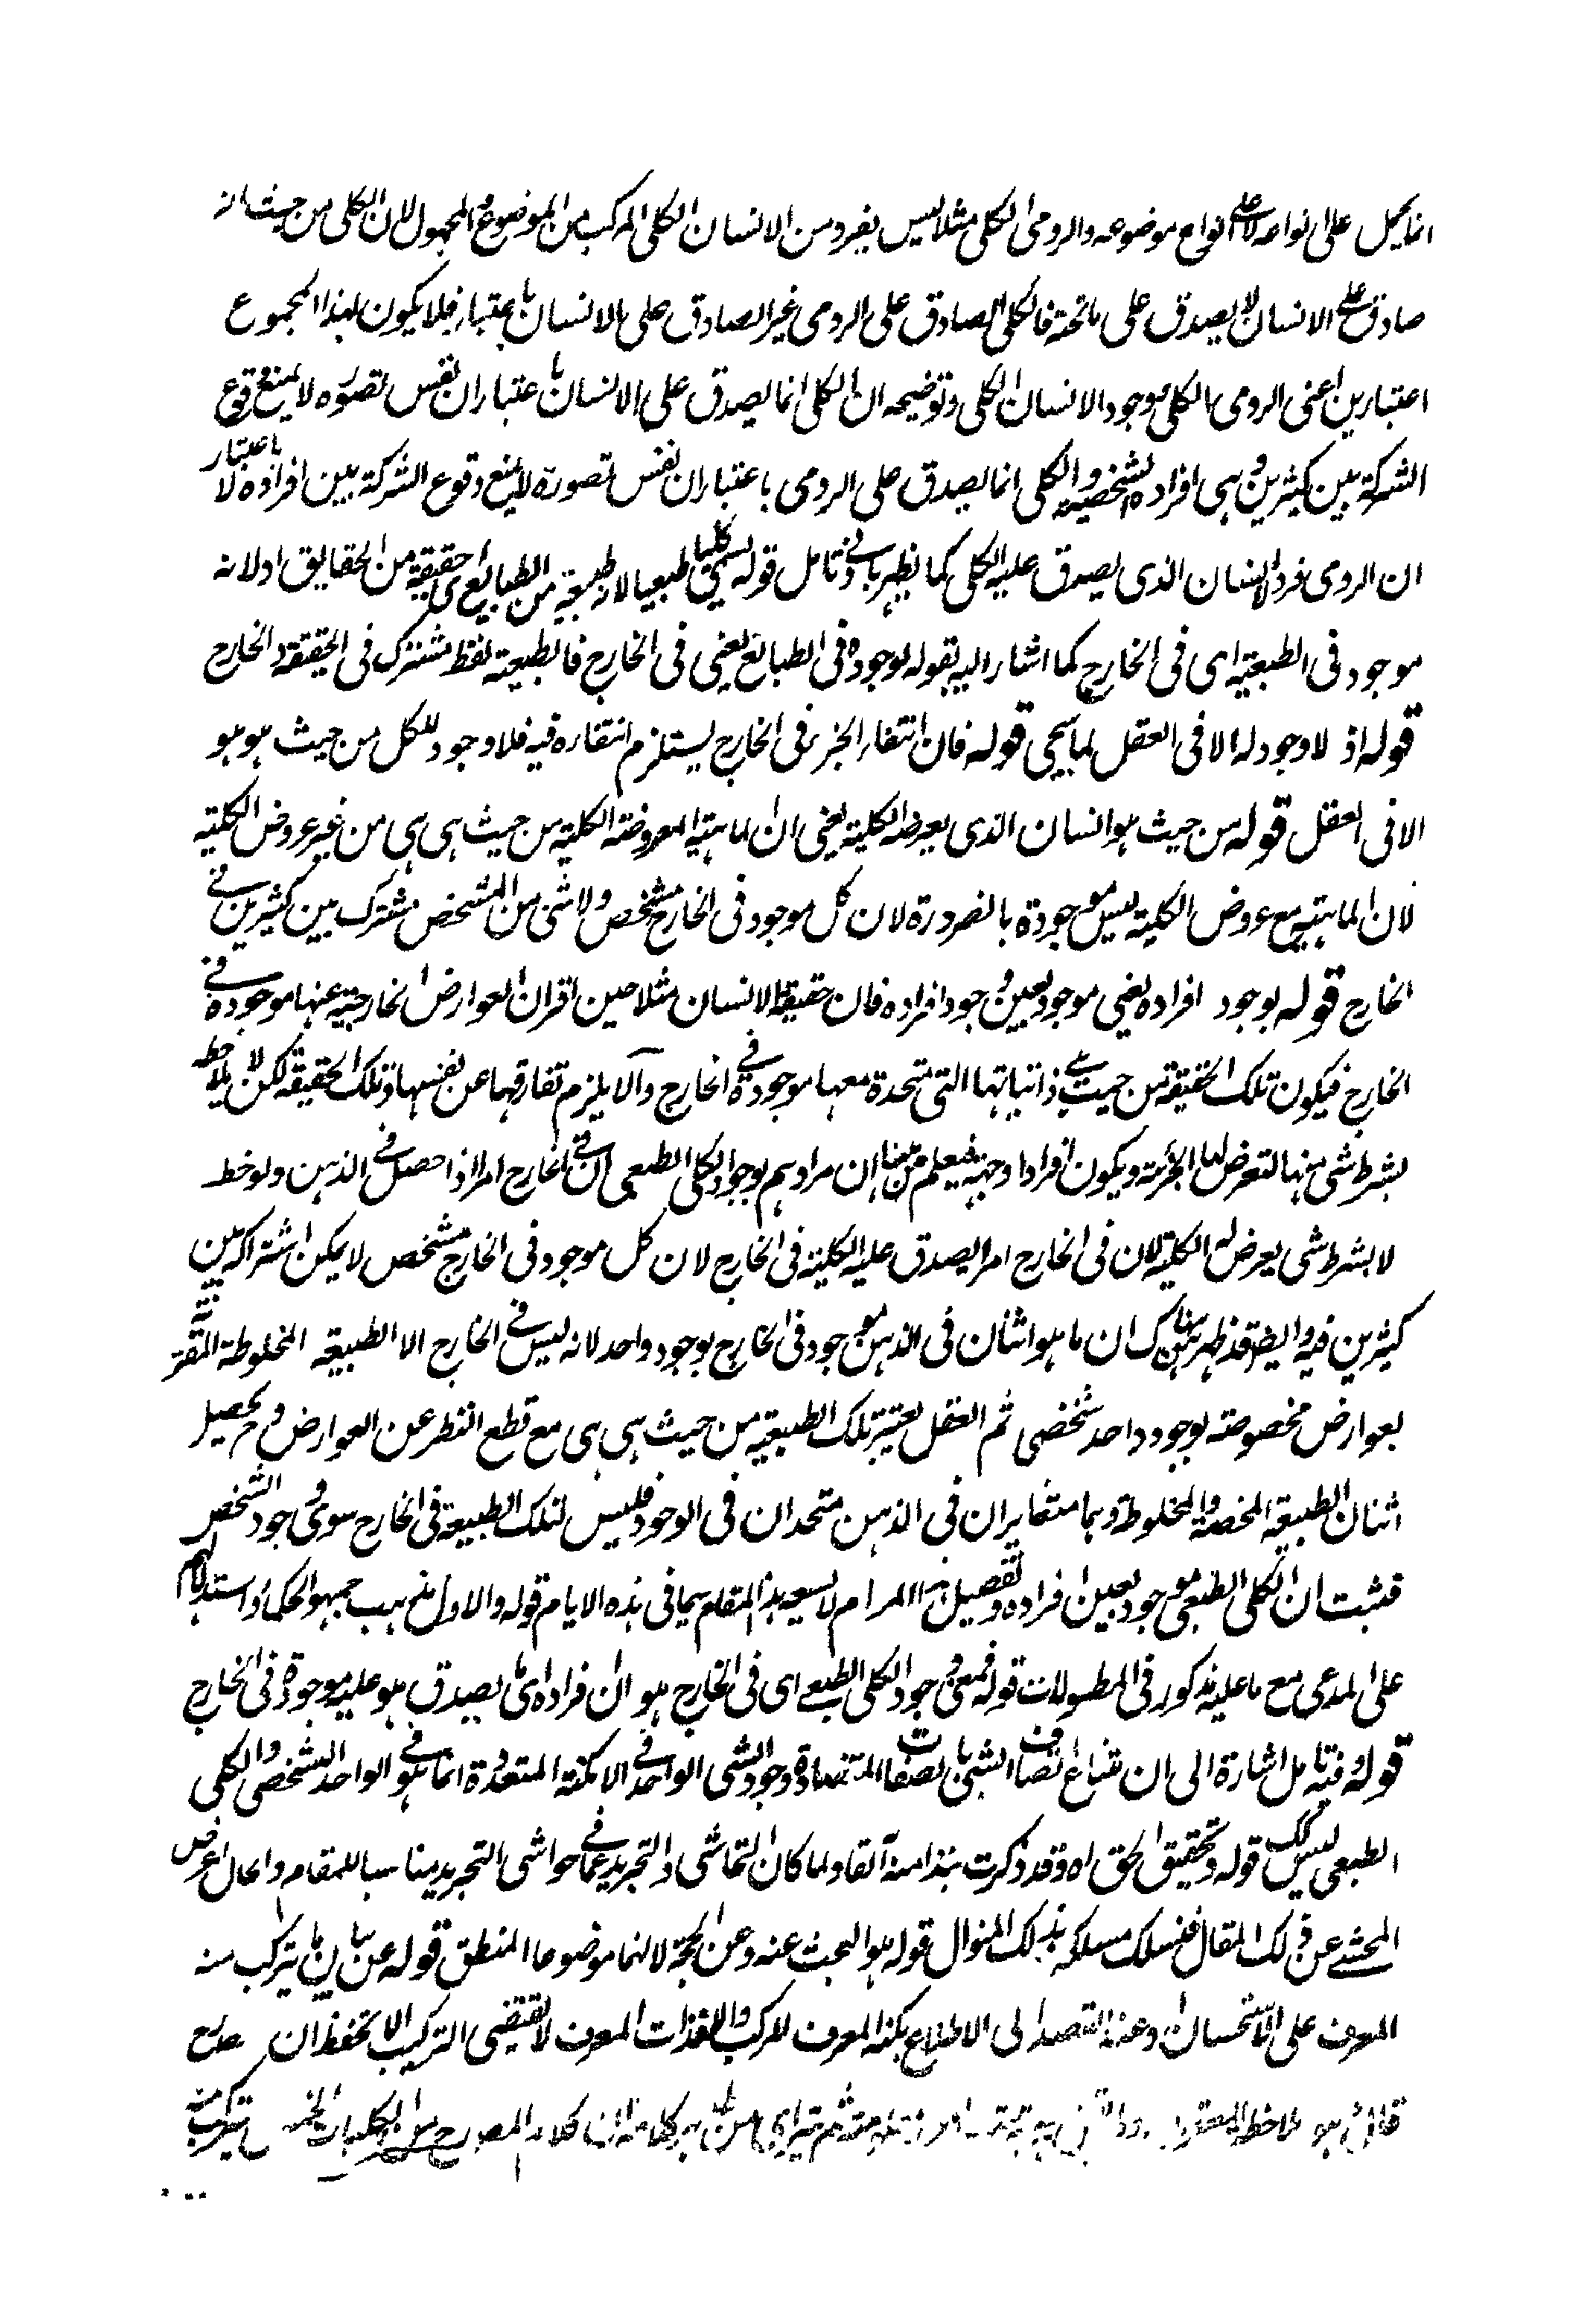 انما يحمل على انواعه لا على انواع موضوعه والرومى الكلى مثلا ليس بفرد من الانسان الكلى المركب من الموضوع والمحمول لان الكلى من حيث انه
صادق على الانسان لا يصدق على ما تحته فالكلى الصادق على الرومى غير الصادق على الانسان باعتبار فلا يكون لهذا المجموع
اعتبارين اعنى الرومى الكلى موجود الانسان الكلى وتوضيحه ان الكلى انما يصدق على الانسان باعتبار ان نفس تصوره لا يمنع وقوع
الشركة بين كثيرين هى افراده الشخصية والكلى انما يصدق على الرومى باعتبار ان نفس تصوره لا يمنع وقوع الشركة بين افراده لا باعتبار
ان الرومى فرد الانسان الذى يصدق عليه الكلى كما يظهر بادنى تامل قوله يسمى كليا طبعيا لانه طبيعة من الطبايع اى حقيقة من الحقايق اولانه
موجود فى الطبيعة اى فى الخارج كما اشار اليه بقوله لوجوده فى الطبائع يعنى فى الخارج فالطبيعة لفظ مشترك فى الحقيقة والخارج
قوله اذ لا وجود له الا فى العقل لما سيجى قوله فان انتفاء الجزء فى الخارج يستلزم انتفاءه فيه فلا وجود للكل من حيث هو هو
الا فى العقل قوله من حيث هو انسان الذى يعرضه الكلية يعنى ان الماهية المعروضة الكلية من حيث هى هى من غير عروض الكلية
لان الماهية مع عروض الكلية ليس موجودة بالضرورة لان كل موجود فى الخارج مشخص ولا شئ من المشخص مشترك بين كثيرين فى
الخارج قوله بوجود افراده يعنى موجود بعين وجود افراده فان حقيقة الانسان مثلا حين اقتران العوارض الخارجية عنها موجودة فى
الخارج فيكون تلك الحقيقة من حيث هى ذاتياتها التى متحدة معها موجودة فى الخارج والا يلزم تفارقها عن نفسها وتلك الحقيقة لكن لا يلاحظ
بشرط شى منها لتعرض لها الجزئية ويكون افرادا وجهة فيعلم من هنا ان مرادهم بوجود الكلى الطبعى ان فى الخارج امرا اذا حصل فى الذهن ولوحظ
لا بشرط شى يعرض له الكلية لان فى الخارج امرا يصدق عليه الكلية فى الخارج لان كل موجود فى الخارج مشخص لا يمكن اشتراكه بين
كثيرين فيه وايضا قد ظهر من هناك ان ما هو اثنان فى الذهن موجود فى الخارج بوجود واحد لانه ليس فى الخارج الا الطبيعة المخلوطة المقترنة
بعوارض مخصوصة بوجود واحد شخصى ثم العقل يعتبر تلك الطبيعة من حيث هى هى مع قطع النظر عن العوارض وح يحصل
اثنان الطبيعة المحضة والمخلوطة وهما متغايران فى الذهن متحدان فى الوجود فليس لتلك الطبيعة فى الخارج سوى وجود الشخص
فثبت ان الكلى الطبعى موجود بعين افراده وتفصيل هذا المرام لا يسعه هذا المقام سيما فى هذه الايام قوله والاول مذهب جمهور الحكماء واستدلالهم
على المدعى مع ما عليه مذكور فى المطولات قوله فمعنى وجود الكلى الطبعى اى فى الخارج هو ان افراده اى ما يصدق هو عليه موجودة فى الخارج
قوله وفيه تامل اشارة الى ان امتناع اتصاف الشئ بالصفات المتضادة ووجود الشى الواحد فى الامكنة المتعددة انما هو فى الواحد الشخصى والكلى
الطبعى ليس كذلك قوله وتحقيق الحق اه وقد ذكرت نبذا منه آنفا ولما كان التحاشى والتجريد عما فى حواشى التجريد مناسبا للمقام والحال اعرض
المحشى عن ذلك المقال فنسلك مسلكه بذلك المنوال قوله هو البحث عنه وعن الحجة لانهما موضوعا المنطق قوله عن بيان ما يتركب منه
المعرف على الاستحسان وعند القصد الى الاطلاع بكنه المعرف للمركب والا فذات المعرف لا يقتضى التركيب الا بحفظ ان